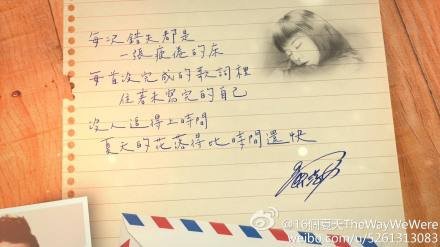 每次錯走都是
一張疲倦的床
每首沒完成的歌詞裡
住著未寫完的自己
沒人追得上時間
夏天的花落得比時間還快
@16個夏天TheWayWeWere
weibo.com/u/5261313083